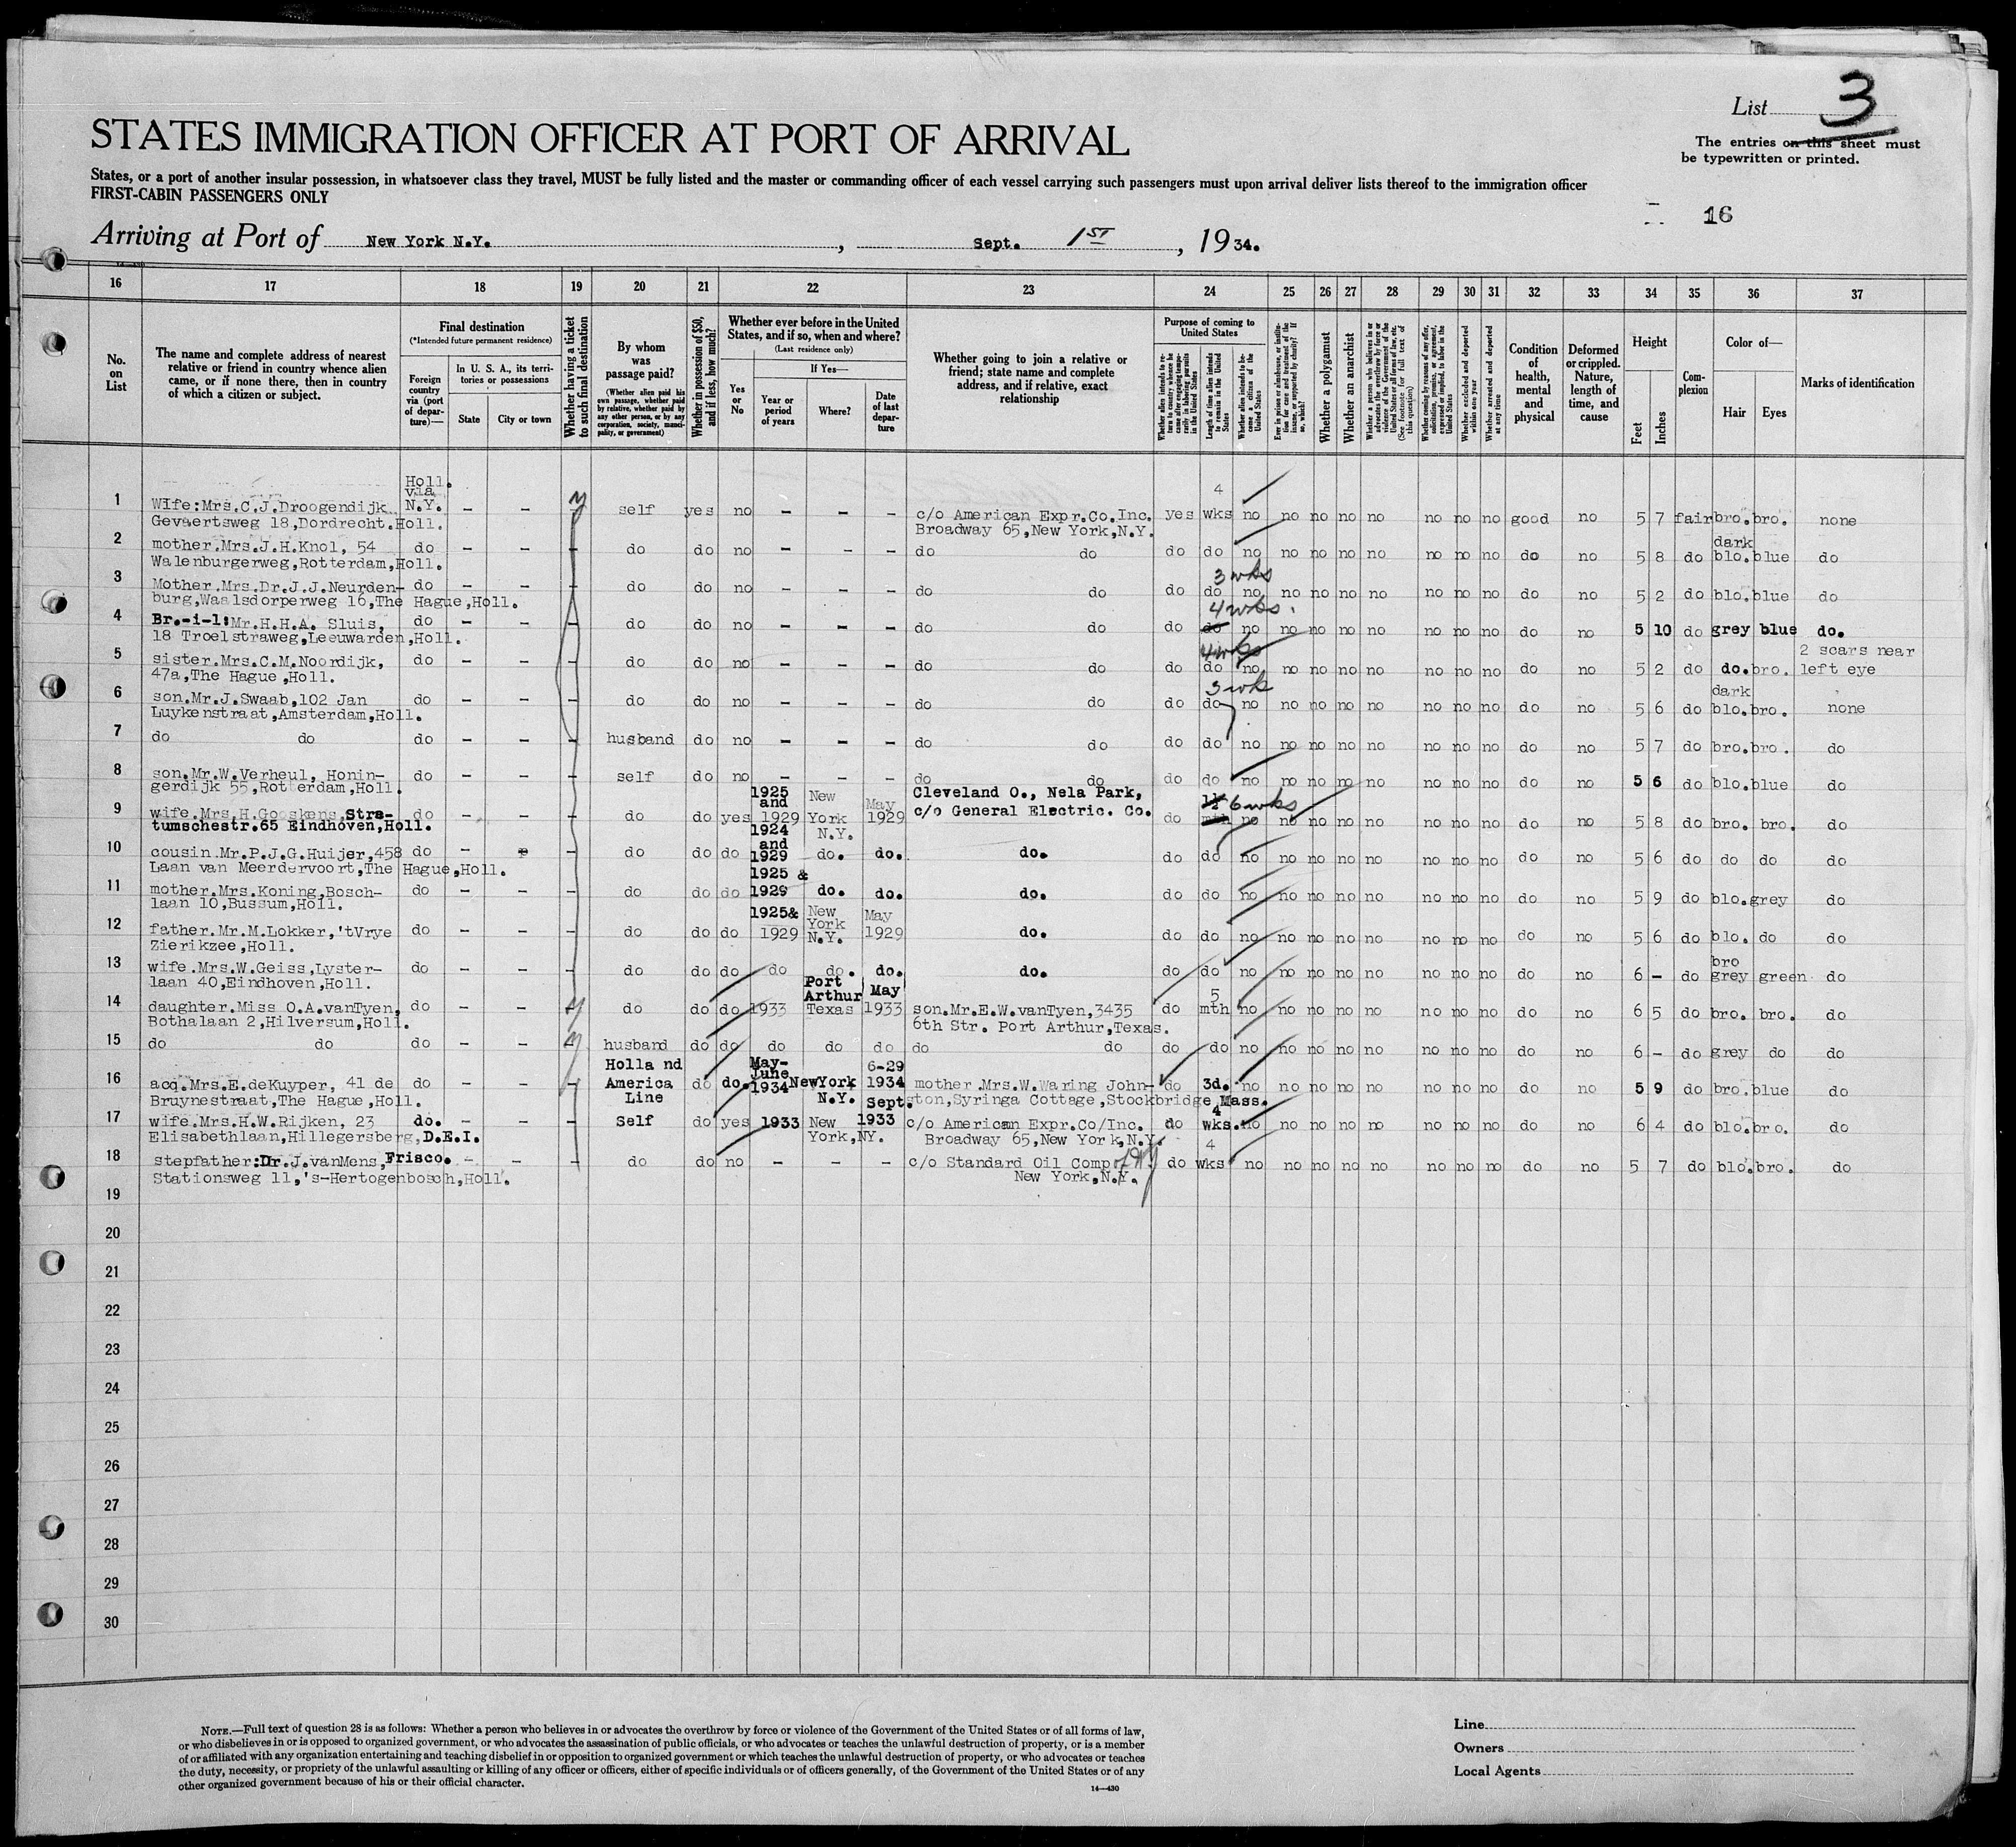 List 3
STATES IMMIGRATION OFFICER AT PORT OF ARRIVAL
The entries on this sheet must
be typewritten or printed.
States, or a port of another insular possession, in whatsoever class they travel, MUST be fully listed and the master or commanding officer of each vessel carrying such passengers must upon arrival deliver lists thereof to the immigration officer
FIRST-CABIN PASSENGERS ONLY
16
Arriving at Port of New York N.Y. , Sept. 1ST , 1934.
16 17 18 19 20 21 22 23 24 25 26 27 28 29 30 31 32 33 34 35 36 37
No. on List
The name and complete address of nearest relative or friend in country whence alien came, or if none there, then in country of which a citizen or subject.
Final destination
(*Intended future permanent residence)
Foreign country via (port of departure)—
In U. S. A., its territories or possessions
State City or town
Whether having a ticket to such final destination
By whom was passage paid?
(Whether alien paid his own passage, whether paid by relative, whether paid by any other person, or by any corporation, society, municipality, or government)
Whether in possession of $50, and if less, how much?
Whether ever before in the United States, and if so, when and where?
(Last residence only)
Yes or No
If Yes—
Year or period of years Where? Date of last departure
Whether going to join a relative or friend; state name and complete address, and if relative, exact relationship
Purpose of coming to United States
Whether alien intends to return to country whence he came after engaging temporarily in laboring pursuits in the United States
Length of time alien intends to remain in the United States
Whether alien intends to become a citizen of the United States
Ever in prison or almshouse, or institution for care and treatment of the insane, or supported by charity? If so, which?
Whether a polygamist
Whether an anarchist
Whether a person who believes in or advocates the overthrow by force or violence of the Government of the United States or all forms of law, etc. (See footnote for full text of this question)
Whether coming by reasons of any offer, solicitation, promise, or agreement, expressed or implied, to labor in the United States
Whether excluded and deported within one year
Whether arrested and deported at any time
Condition of health, mental and physical
Deformed or crippled. Nature, length of time, and cause
Height
Feet Inches
Complexion
Color of—
Hair Eyes
Marks of identification
1 Wife:Mrs.C.J.Droogendijk Holl. via N.Y. – – y self yes no – – – c/o American Expr.Co.Inc. yes 4 wks no no no no no no no no good no 5 7 fair bro. bro. none
Gevaertsweg 18,Dordrecht.Holl. Broadway 65,New York,N.Y.
2 mother.Mrs.J.H.Knol, 54 do – – – do do no – – – do do do do no no no no no no no no do no 5 8 do dark blo. blue do
Walenburgerweg,Rotterdam,Holl.
3 Mother.Mrs.Dr.J.J.Neurden- do – – – do do no – – – do do do 3 wks do no no no no no no no no do no 5 2 do blo. blue do
burg,Waalsdorperweg 16,The Hague,Holl.
4 Br.-i-l:Mr.H.H.A. Sluis, do – – – do do no – – – do do do 4 wks. do no no no no no no no no do no 5 10 do grey blue do.
18 Troelstraweg,Leeuwarden,Holl.
5 sister.Mrs.C.M.Noordijk, do – – – do do no – – – do do do 4 wks do no no no no no no no no do no 5 2 do do. bro. 2 scars near left eye
47a,The Hague,Holl.
6 son.Mr.J.Swaab,102 Jan do – – – do do no – – – do do do 3 wk do no no no no no no no no do no 5 6 do dark blo. bro. none
Luykenstraat,Amsterdam,Holl.
7 do do do – – – husband do no – – – do do do do no no no no no no no no do no 5 7 do bro. bro. do
8 son.Mr.W.Verheul, Honin- do – – – self do no – – – do do do do no no no no no no no no do no 5 6 do blo. blue do
gerdijk 55,Rotterdam,Holl.
9 wife.Mrs.H.Gooskens,Stra- do – – – do do yes 1925 and 1929 New York N.Y. May 1929 Cleveland O., Nela Park, c/o General Electric. Co. do 1½ mth 6 wks no no no no no no no no do no 5 8 do bro. bro. do
tumschestr.65 Eindhoven,Holl.
10 cousin.Mr.P.J.G.Huijer,458 do – – – do do do 1924 and 1929 do. do. do. do do no no no no no no no no do no 5 6 do do do do
Laan van Meerdervoort,The Hague,Holl.
11 mother.Mrs.Koning,Bosch- do – – – do do do 1925 & 1929 do. do. do. do do no no no no no no no no do no 5 9 do blo. grey do
laan 10,Bussum,Holl.
12 father.Mr.M.Lokker,'tVrye do – – – do do do 1925& 1929 New York N.Y. May 1929 do. do do no no no no no no no no do no 5 6 do blo. do do
Zierikzee,Holl.
13 wife.Mrs.W.Geiss,Lyster- do – – – do do do do do. do. do. do do no no no no no no no no do no 6 – do bro grey green do
laan 40,Eindhoven,Holl.
14 daughter.Miss O.A.vanTyen, do – – y do do do 1933 Port Arthur Texas May 1933 son.Mr.E.W.vanTyen,3435 do 5 mth no no no no no no no no do no 6 5 do bro. bro. do
Bothalaan 2,Hilversum,Holl. 6th Str. Port Arthur,Texas.
15 do do do – – y husband do do do do do do do do do no no no no no no no no do no 6 – do grey do do
16 acq.Mrs.E.deKuyper, 41 de do – – – Holla nd America Line do do. May-June 1934 NewYork N.Y. 6-29 1934 mother.Mrs.W.Waring John- do 3d. no no no no no no no no do no 5 9 do bro. blue do
Bruynestraat,The Hague,Holl. ston,Syringa Cottage,Stockbridge Mass.
17 wife.Mrs.H.W.Rijken, 23 do. – – – Self do yes 1933 New York,NY. Sept. 1933 c/o American Expr.Co/Inc. do 4 wks. no no no no no no no no do no 6 4 do blo. bro. do
Elisabethlaan,Hillegersberg,D.E.I. Broadway 65,New York,N.Y.
18 stepfather:Dr.J.vanMens, Frisco. – – – do do no – – – c/o Standard Oil Comp do 4 wks no no no no no no no no do no 5 7 do blo. bro. do
Stationsweg 11,'s-Hertogenbosch,Holl. New York,N.Y.
19
20
21
22
23
24
25
26
27
28
29
30
NOTE.—Full text of question 28 is as follows: Whether a person who believes in or advocates the overthrow by force or violence of the Government of the United States or of all forms of law,
or who disbelieves in or is opposed to organized government, or who advocates the assassination of public officials, or who advocates or teaches the unlawful destruction of property, or is a member
of or affiliated with any organization entertaining and teaching disbelief in or opposition to organized government or which teaches the unlawful destruction of property, or who advocates or teaches
the duty, necessity, or propriety of the unlawful assaulting or killing of any officer or officers, either of specific individuals or of officers generally, of the Government of the United States or of any
other organized government because of his or their official character.
14—430
Line
Owners
Local Agents